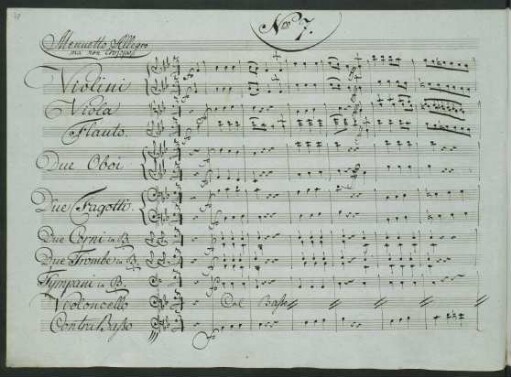 Nro 7.
Menuetto Allegro
ma non troppo
Violini
Viola
Flauto
Due Oboi
Due Fagotti
Due Corni in B
Due Trombe in B
Tympani in B
Violoncello Col Basso
ContraBasso